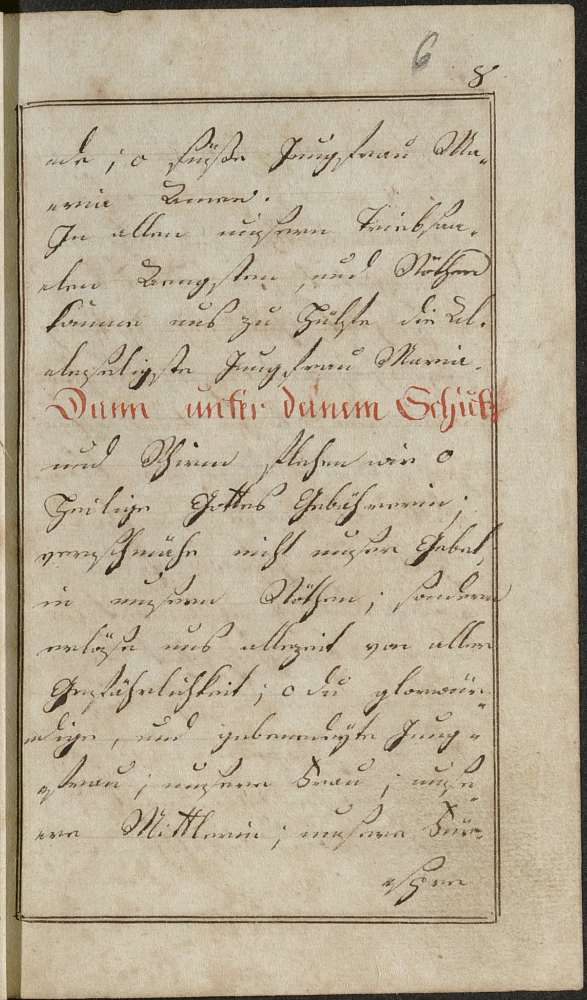 6
8
ade ; o süße Jungfrau Ma=
aria Amen.
In allen unsern Triebsaa=
len Aengsten, und Nöthen
komme uns zu Hülfe die Al=
lerseligste Jungfrau Maria.
Dunn unter deinem Schutz
und Schirm fliehen wir o
Heilige Gottes Gebährerin;
verschmähe nicht unser Gebet,
in unsern Nöthen; sondern
erlöse uns allezeit von aller
Gefährlichkeit; o du glorwür=
dige, und gebenedeyte Jung=
frau; unsere Frau; unse=
ere Mittlerin; unsere Für=
spre